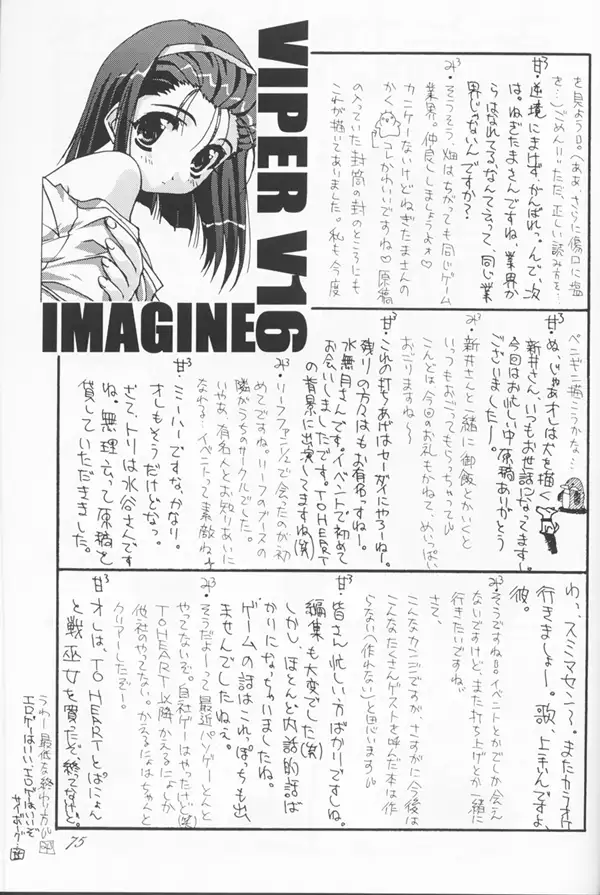 VIPER V16
IMAGINE
を見ようロ。(ああ、さらに傷口に塩
を…)ごめんなさい…ただ、正しい読み方を…
甘³・逆境にまけず、がんばれっ。んで、次
は。ねぎたまさんですね、業界か
らはなれてるなんて云って、同じ業
界じゃないんですか?
みз・そうそう、畑はちがっても同じゲーム
業界。仲良くしましょうよぉ♡
カンケーないけどねぎたまさんの
かく コレかわいいですね♡原稿
の入っていた封筒の封のところにも
これが描いてありました。私も今度
ペンギン描こうかな…
甘³・ぬ、じゃあオレは犬を描く
新井さん、いつもお世話になってます。
今回はお忙しい中原稿ありがとう
ございましたー。
みз・新井さんと一緒に御飯とかいくと
いっつもおごってもらっちゃって
こんどは今回のお礼もかねて、めいっぱい
おごりますね〜
甘³・これの打ちあげはセーダイにやろーね。
残りの方々はもうお有名っすねー。
水無月さんです。イベントで初めて
お会いしましたです。TO HEART
の背景に出演してますね(笑)
みз・リーフファンで会ったのが初
めてですね。リーフのブースの
隣がうちのサークルでした。
いやあ、有名人とお知りあいに
なれる…イベントって素敵ね。
甘³・ミーハーですな、かなり。
オレもそうだけどなっ。
さて、トリは水谷さんです
ね。無理云って原稿を
貸していただきました。
わ、スミマセン〜。またカラオケ
行きましょー。歌、上手んですよ、
彼。
みз・そうですねロ。イベントとかでしか会え
ないですけど、また打ち上げとか一緒に
行きたいですね
さて、
こんなカンジですが、さすがに今後は
こんなたくさんゲストを呼んだ本は作
らない(作れない)と思います
甘³・皆さん忙しい方ばかりですしね。
編集も大変でした(笑)
しかし、ほとんど内話的話ば
かりになってるいましたね。
ゲームの話はこれっぽっちも出
ませんでしたねぇ。
みз・そうだよーって最近パソゲーとんと
やってないぞ。自社ゲーはやったけど(笑)
TO HEART以降かえるにょしか
他社のやってない。かえるにょはちゃんと
クリアーしたぞー。
甘³・オレは、TO HEARTとぱにょん
と戦巫女を買ったぞ、終ってないけど。
うわー最低な終わり方
エロゲーはいい、エロゲーはいいぞ
75